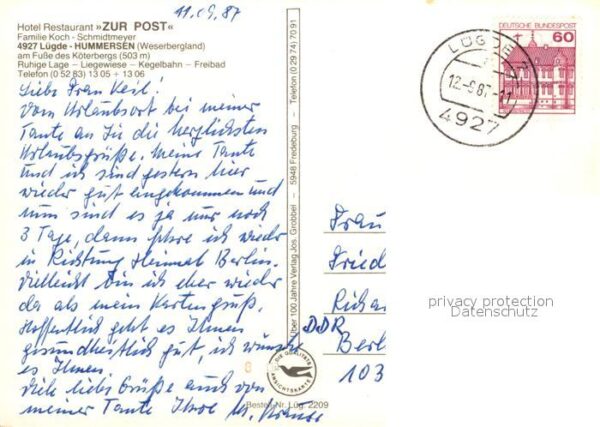 11.09.87
Hotel Restaurant »ZUR POST«
Familie Koch - Schmidtmeyer
4927 Lügde - HUMMERSEN (Weserbergland)
am Fuße des Köterbergs (503 m)
Ruhige Lage – Liegewiese – Kegelbahn – Freibad
Telefon (0 52 83) 13 05 + 13 06
Liebe Frau Keil!
Vom Urlaubsort bei meiner
Tante an Sie die herzlichsten
Urlaubsgrüße. Meine Tante
und ich sind gestern hier
wieder gut eingekommen und
nun sind es ja nur noch
3 Tage, dann fahre ich wieder
in Richtung Heimat Berlin.
Vielleicht bin ich eher wieder
da als mein Kartengruß.
Hoffentlich geht es Ihnen
gesundheitlich gut, ich wünsche
es Ihnen.
Viele liebe Grüße auch von
meiner Tante Ihre
Über 100 Jahre Verlag Jos. Grobbel – 5948 Fredeburg – Telefon (0 29 74) 70 91
DIE QUALITÄTS
ANSICHTSKARTE
8
Bestell-Nr. Lüg. 2209
DEUTSCHE BUNDESPOST
60
LÜGDE 1
12.-9.87-11
4927
Frau
Fried
Richa
DDR
Berl
103
privacy protection
Datenschutz